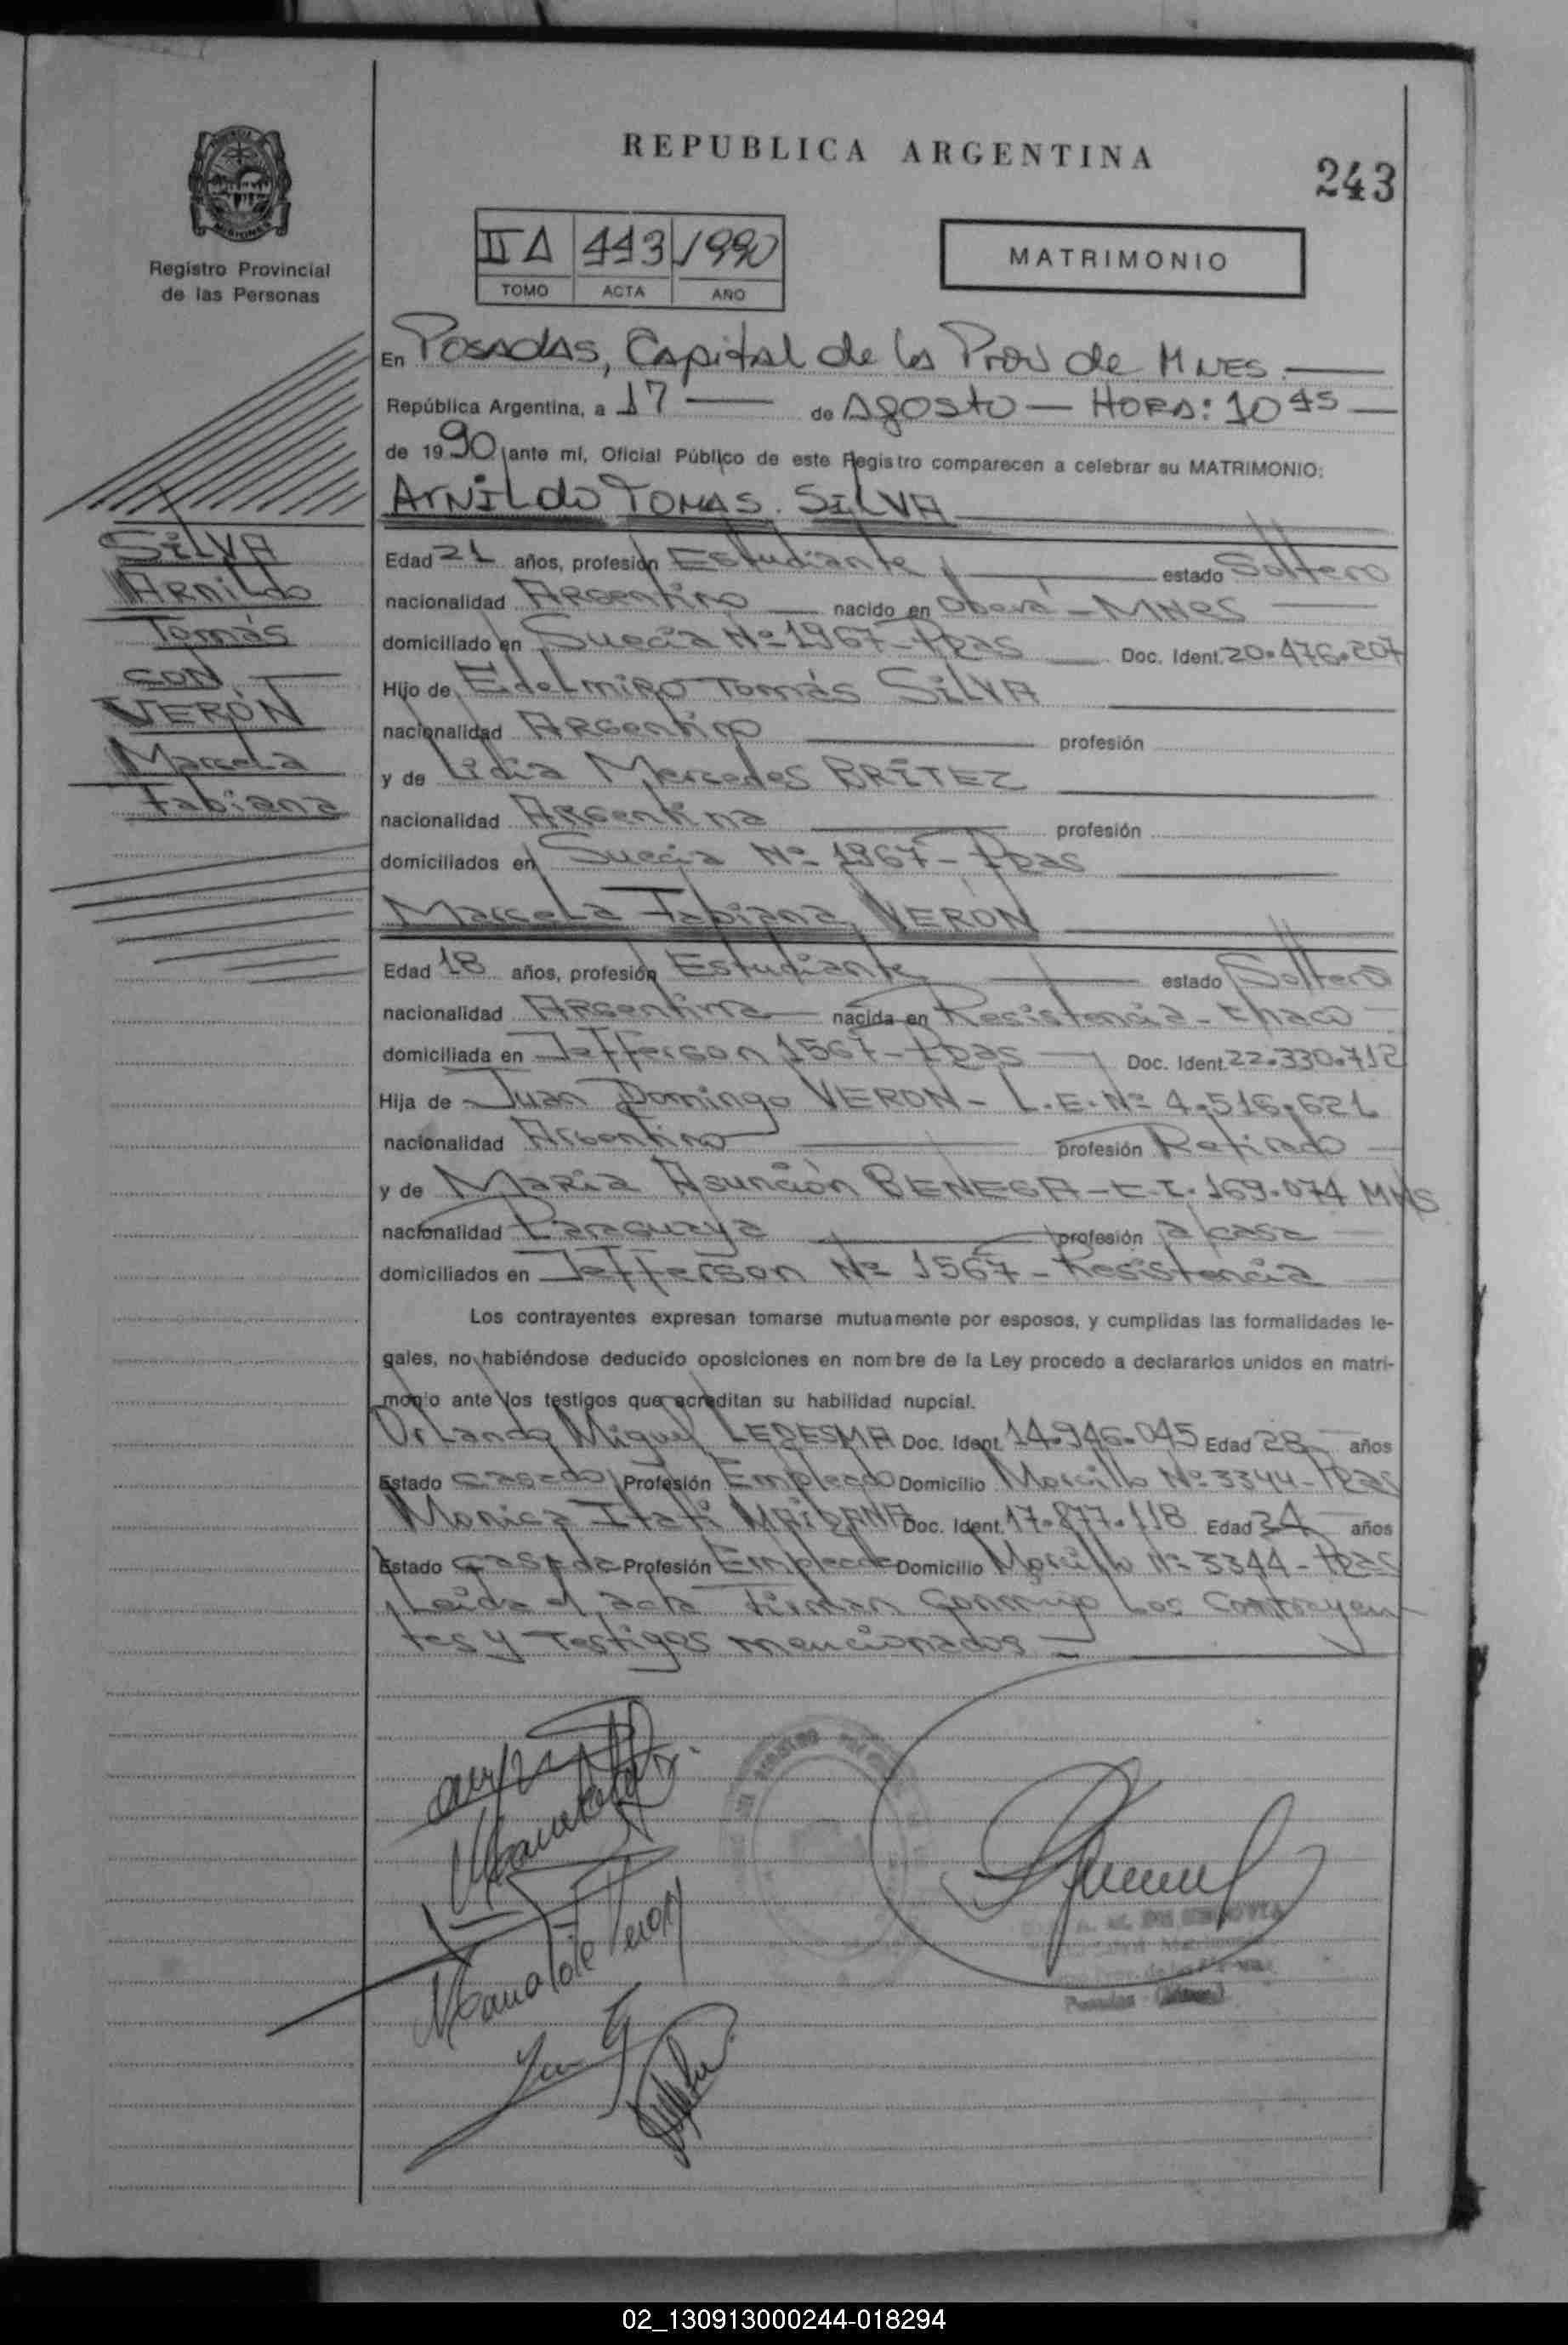 REPUBLICA ARGENTINA
243
MISIONES
Registro Provincial
de las Personas
II A 443 1990
TOMO ACTA AÑO
MATRIMONIO
En Posadas, Capital de la Prov de Mnes.
República Argentina, a 17 de Agosto - HORA: 10 45
de 1990 ante mí, Oficial Público de este Registro comparecen a celebrar su MATRIMONIO:
Arnildo Tomas SILVA
SILVA
Arnildo
Tomás
CON
VERÓN
Marcela
Fabiana
Edad 21 años, profesión Estudiante estado Soltero
nacionalidad Argentino nacido en Oberá - Mnes
domiciliado en Suecia Nº 1967 - Pdas Doc. Ident. 20.476.207
Hijo de Edelmiro Tomás SILVA
nacionalidad Argentino profesión
y de Lidia Mercedes BRITEZ
nacionalidad Argentina profesión
domiciliados en Suecia Nº 1967 - Pdas
Marcela Fabiana VERÓN
Edad 18 años, profesión Estudiante estado Soltera
nacionalidad Argentina nacida en Resistencia - Chaco
domiciliada en Jefferson 1567 - Pdas Doc. Ident. 22.330.712
Hija de Juan Domingo VERON - L.E. Nº 4.516.621
nacionalidad Argentino profesión Retirado
y de Maria Asunción BENEGA - C.I. 169.074 MNS
nacionalidad Paraguaya profesión a/casa
domiciliados en Jefferson Nº 1567 - Resistencia
Los contrayentes expresan tomarse mutuamente por esposos, y cumplidas las formalidades le-
gales, no habiéndose deducido oposiciones en nombre de la Ley procedo a declararlos unidos en matri-
monio ante los testigos que acreditan su habilidad nupcial.
Orlando Miguel LEDESMA Doc. Ident. 14.946.045 Edad 28 años
Estado Casado Profesión Empleado Domicilio Morcillo Nº 3344 - Pdas
Monica Itati MAIDANA Doc. Ident. 17.877.118 Edad 24 años
Estado Casada Profesión Empleada Domicilio Morcillo Nº 3344 - Pdas
Leida el acta Firman Conmigo Los Contrayen-
tes y Testigos mencionados
Posadas
02_130913000244-018294